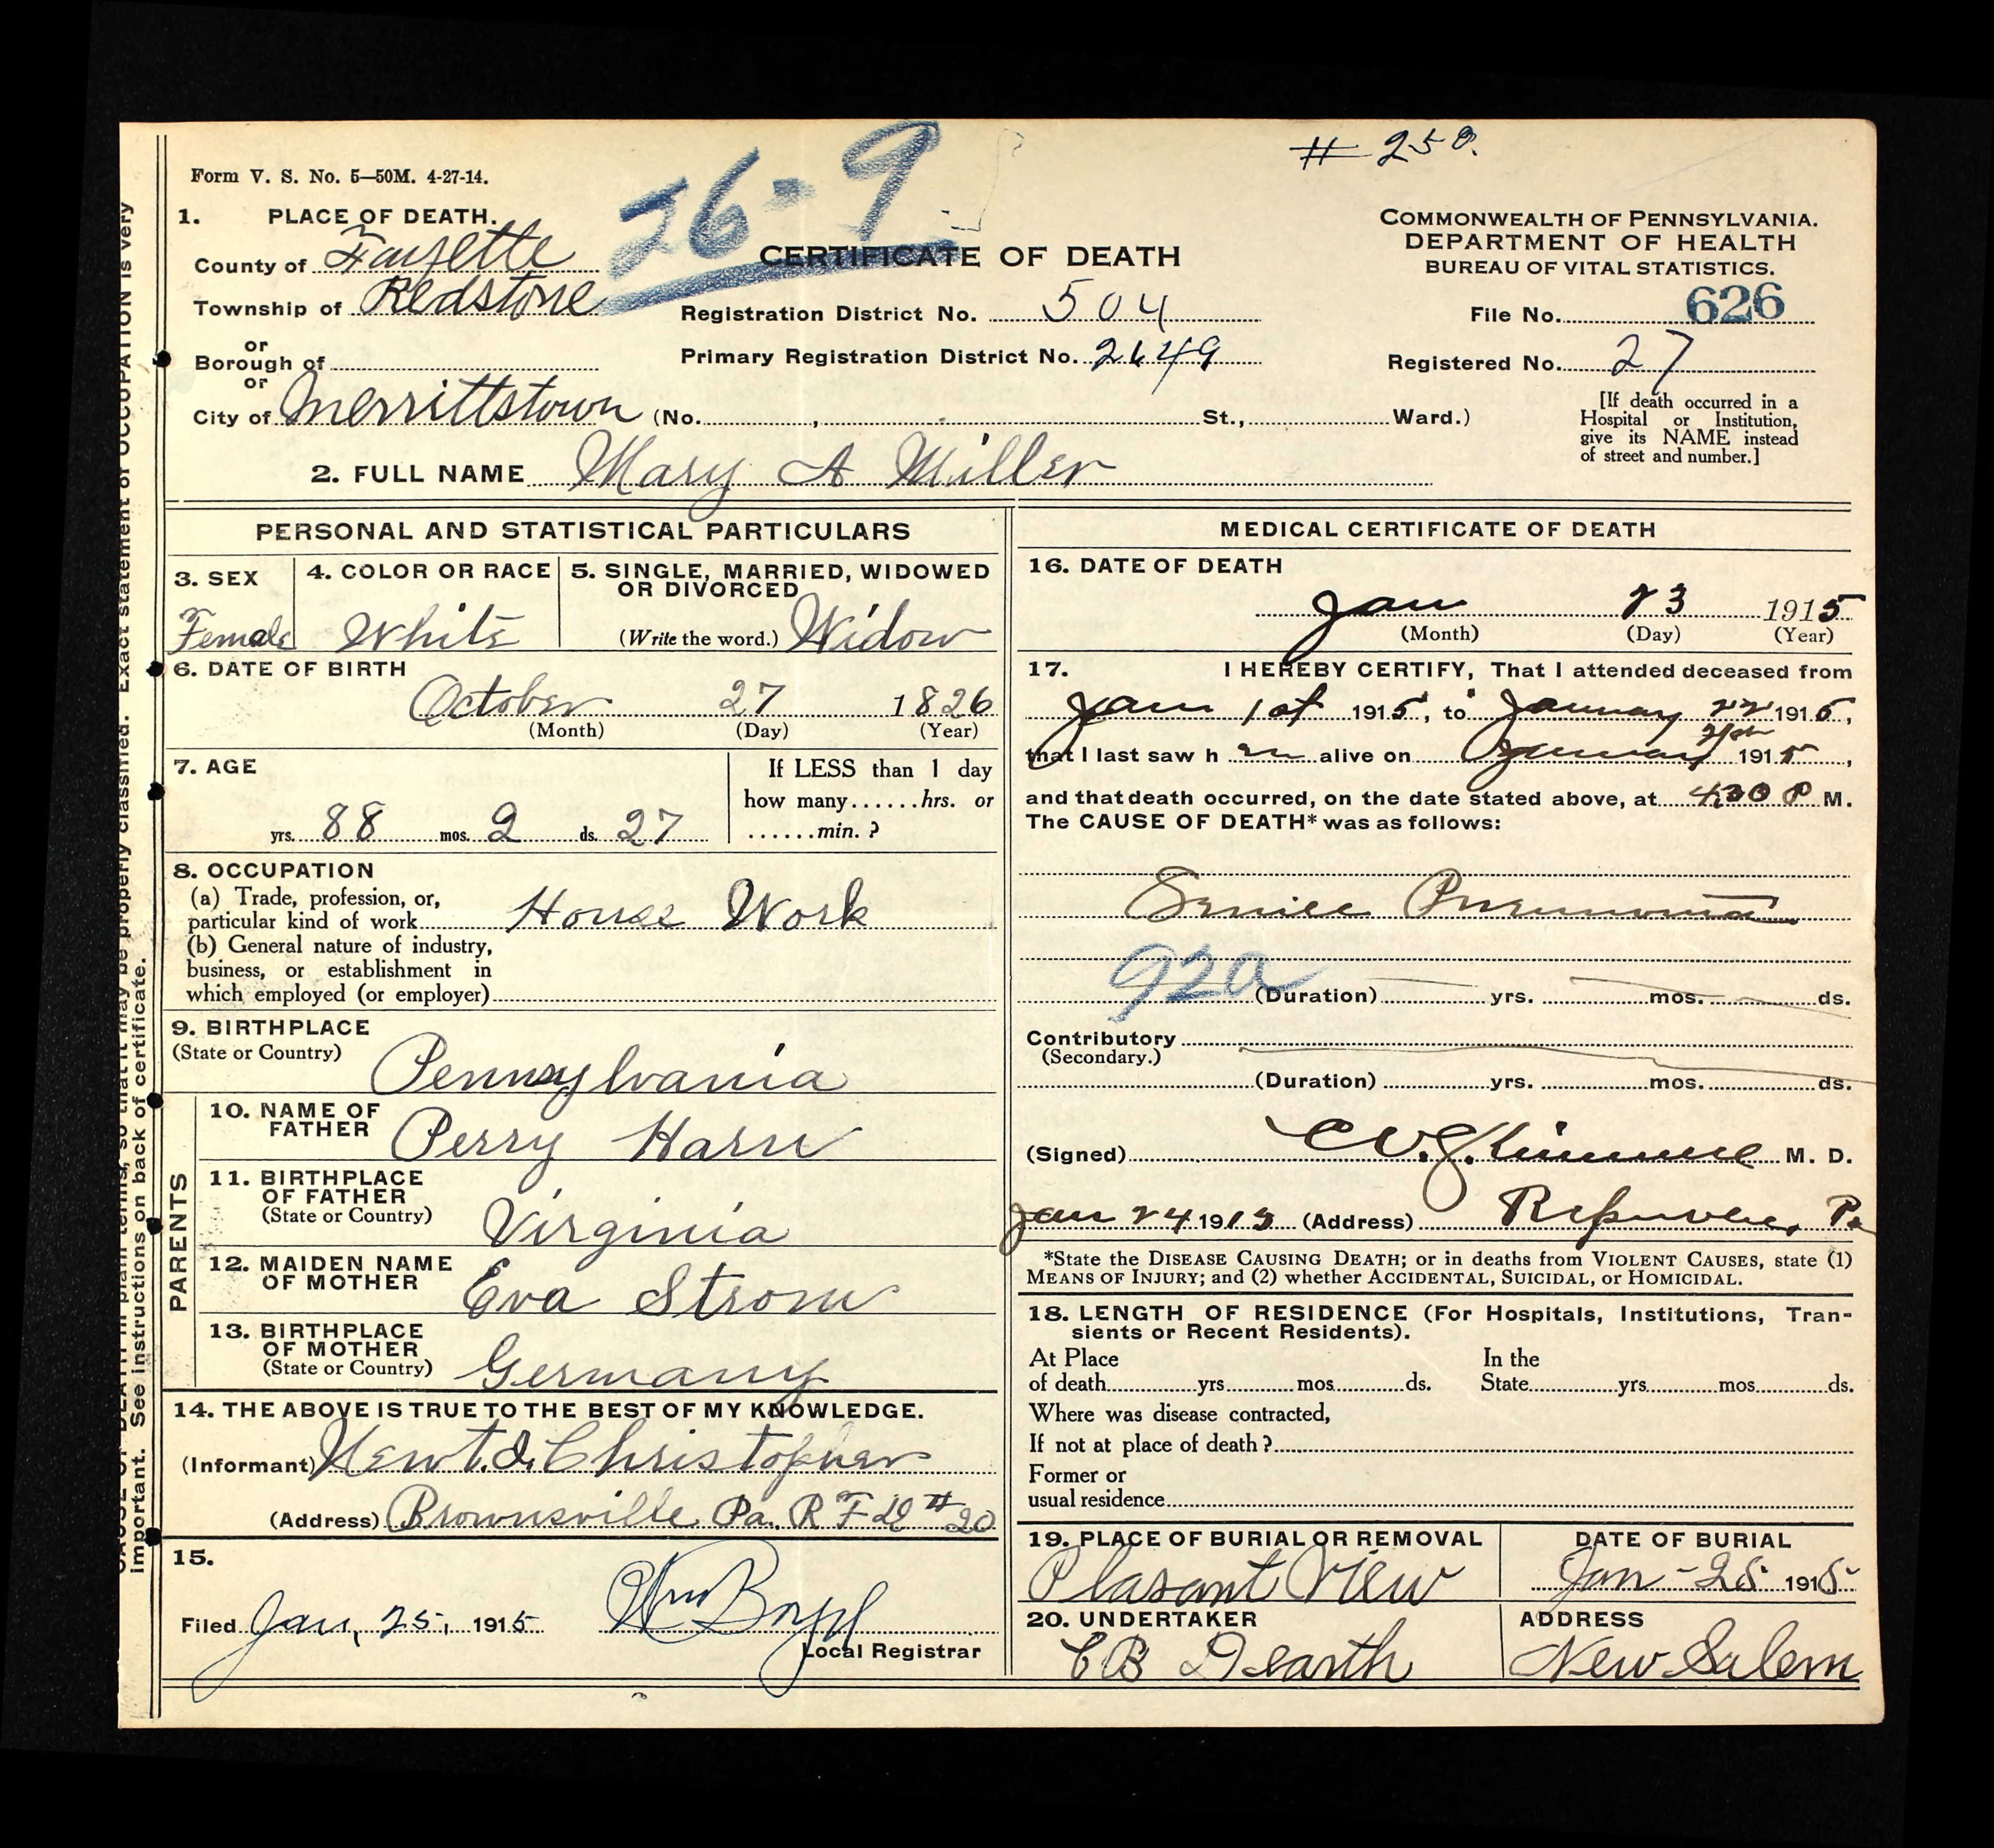 # 258.
26-9
Form V. S. No. 5—50M. 4-27-14.
1. PLACE OF DEATH.
County of Fayette
Township of Redstone
or
Borough of
or
City of Merrittstown (No. , St., Ward.)
CERTIFICATE OF DEATH
Registration District No. 504
Primary Registration District No. 2649
COMMONWEALTH OF PENNSYLVANIA.
DEPARTMENT OF HEALTH
BUREAU OF VITAL STATISTICS.
File No. 626
Registered No. 27
[If death occurred in a
Hospital or Institution,
give its NAME instead
of street and number.]
2. FULL NAME Mary A Miller
PERSONAL AND STATISTICAL PARTICULARS
3. SEX
Female
4. COLOR OR RACE
White
5. SINGLE, MARRIED, WIDOWED
OR DIVORCED
(Write the word.) Widow
6. DATE OF BIRTH
October 27 1826
(Month) (Day) (Year)
7. AGE
yrs. 88 mos. 2 ds. 27
If LESS than 1 day
how many......hrs. or
......min. ?
8. OCCUPATION
(a) Trade, profession, or,
particular kind of work House Work
(b) General nature of industry,
business, or establishment in
which employed (or employer)
9. BIRTHPLACE
(State or Country)
Pennsylvania
PARENTS
10. NAME OF
FATHER Perry Harn
11. BIRTHPLACE
OF FATHER
(State or Country) Virginia
12. MAIDEN NAME
OF MOTHER Eva Strom
13. BIRTHPLACE
OF MOTHER
(State or Country) Germany
14. THE ABOVE IS TRUE TO THE BEST OF MY KNOWLEDGE.
(Informant) Newt. J. Christopher
(Address) Brownsville Pa. R F D # 20
15.
Filed Jan, 25, 1915 Wm Boyd
Local Registrar
MEDICAL CERTIFICATE OF DEATH
16. DATE OF DEATH
Jan 23 1915
(Month) (Day) (Year)
17. I HEREBY CERTIFY, That I attended deceased from
Jan 1st 1915, to January 22 1915,
that I last saw h er alive on January 1915,
and that death occurred, on the date stated above, at 4.30 P M.
The CAUSE OF DEATH* was as follows:
Senile Pneumonia
92a
(Duration) yrs. mos. ds.
Contributory
(Secondary.)
(Duration) yrs. mos. ds.
(Signed) M. D.
Jan 24 1915 (Address) Pa
*State the DISEASE CAUSING DEATH; or in deaths from VIOLENT CAUSES, state (1)
MEANS OF INJURY; and (2) whether ACCIDENTAL, SUICIDAL, or HOMICIDAL.
18. LENGTH OF RESIDENCE (For Hospitals, Institutions, Tran-
sients or Recent Residents).
At Place
of death yrs mos ds.
In the
State yrs mos ds.
Where was disease contracted,
If not at place of death ?
Former or
usual residence
19. PLACE OF BURIAL OR REMOVAL
Plasant View
DATE OF BURIAL
Jan - 25 1915
20. UNDERTAKER
C B Dearth
ADDRESS
New Salem
important. See instructions on back of certificate.